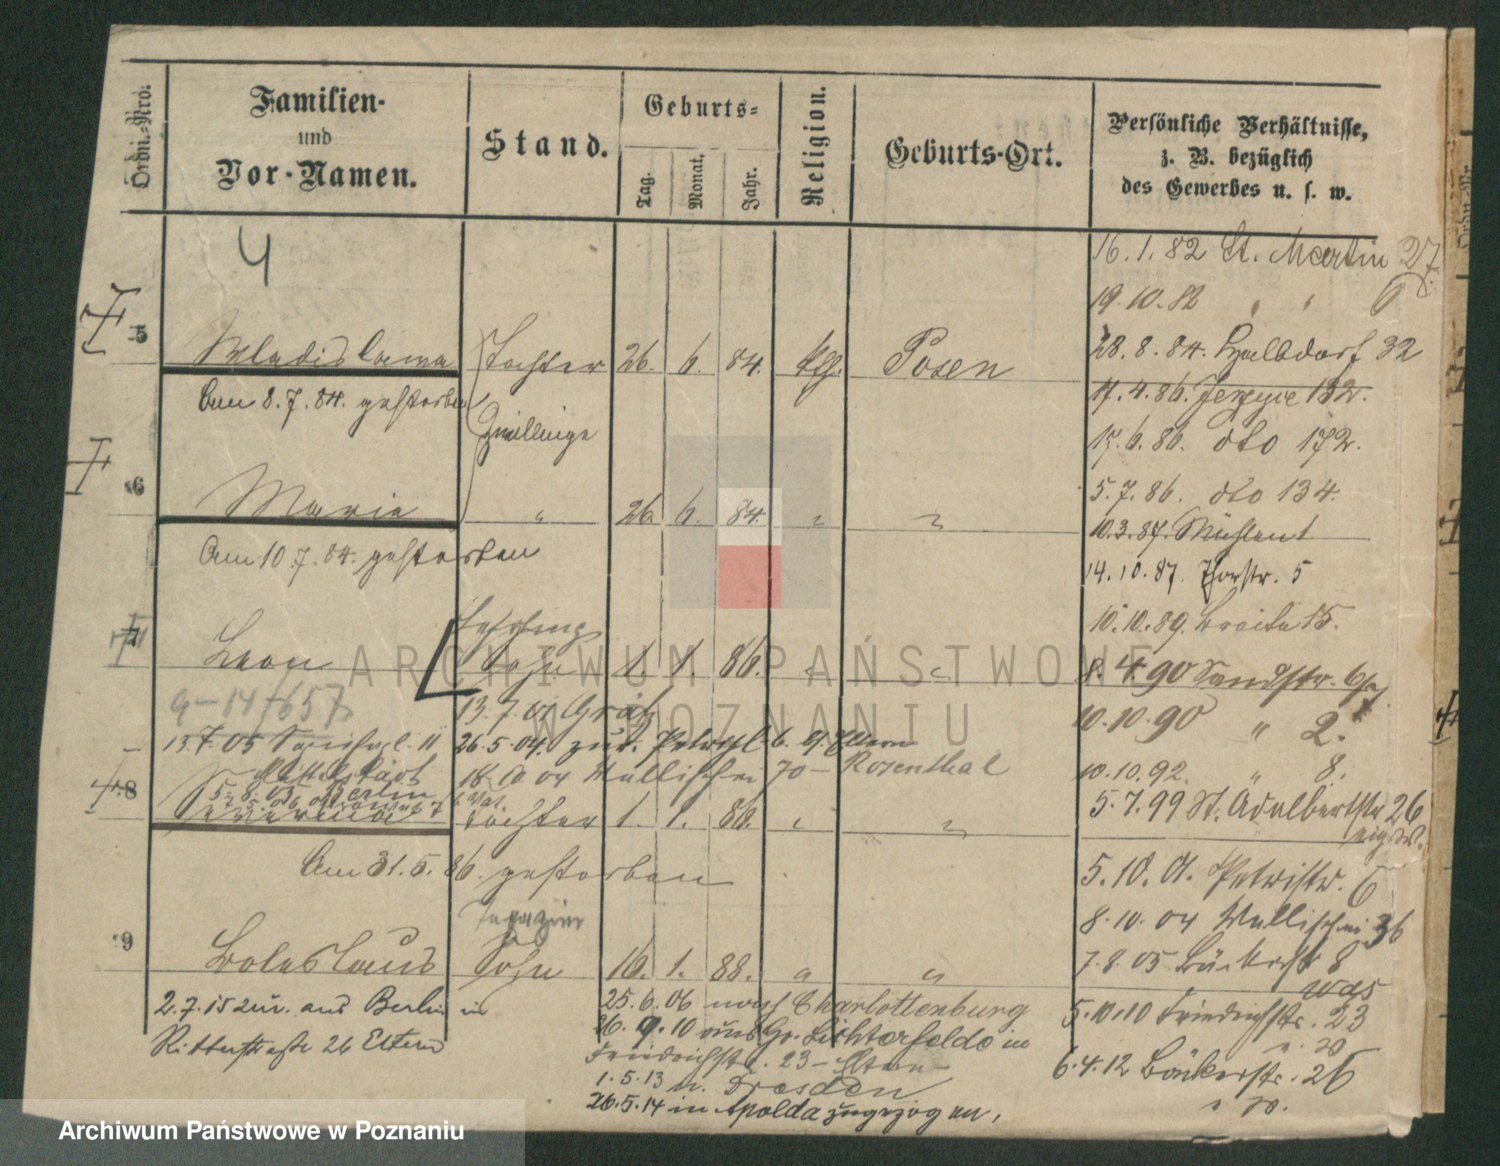 Ordn.-Nro.
Familien-
und
Vor-Namen.
Stand.
Geburts-
Tag.
Monat.
Jahr.
Religion.
Geburts-Ort.
Persönliche Verhältnisse,
z. B. bezüglich
des Gewerbes u. s. w.
4
16.1.82 St. Martin 27
19.10.82 " " 6
5 Wladislawa Tochter 26. 6. 84. kth. Posen
28.8.84. Halbdorf 32
Am 8.7.84. gestorben
17.4.86. Jerzyce 132.
Zwillinge
17.6.86. dto 172.
6 Marie " 26. 6. 84. " "
5.7.86. dto 134.
10.3.87. Mühlent
Am 10.7.84. gestorben
14.10.87. Thorstr. 5
10.10.89. Breite 15.
7 Leon Lehrling
Sohn 1. 1. 86. " "
8.4.90 Sandstr.
9-14/657
13.7.01 Grätz
10.10.90 " 2.
26.5.04. zur. 6. Eltern
10.04 Wallischei 70 - Rosenthal
10.10.92. " 8.
Berlin
8 Severina Tochter 1. 1. 86. " "
5.7.99 St. Adalbertstr 26
Am 31.5.86. gestorben
5.10.01. Petristr. 6
8.10.04 Wallischei 36
9 Boleslaus Sohn 16. 1. 88. " "
7.8.05 Bäckerstr 8
2.7.15 zur. aus Berlin in
25.6.06 nach Charlottenburg
5.10.10 Friedrichstr. 23
Ritterstraße 26 Eltern
26.9.10 aus Gr. Lichterfelde in
Friedrichstr. 23 - Eltern -
6.4.12 Bäckerstr. 26
1.5.13 n. Dresden
26.5.14 in Apolda zugezogen.
ARCHIWUM PAŃSTWOWE
W POZNANIU
Archiwum Państwowe w Poznaniu